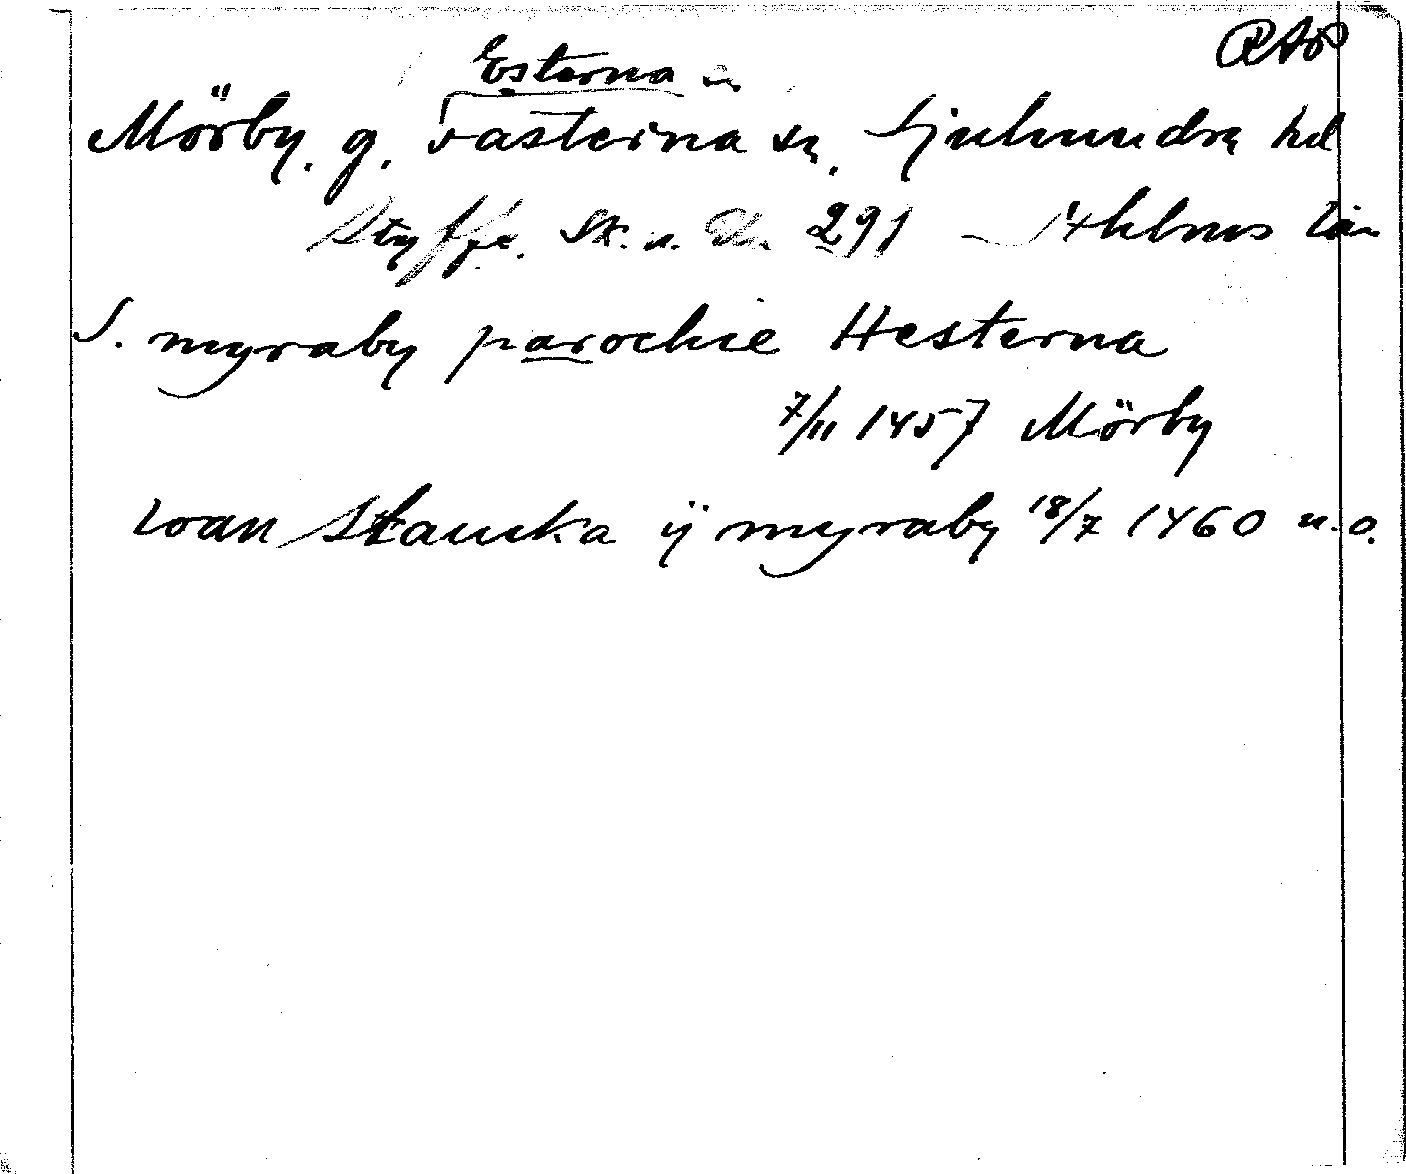 RAP
Esterna sn.
Mörby. g. Fasterna sn. Sjuhundra hd
Styffe. Sk. u. Un. 291 — Sthlms län
S. myraby parochie Hesterna
7/11 1457 Mörby
woan Skaucka ÿ myraby 18/7 1460 u.o.